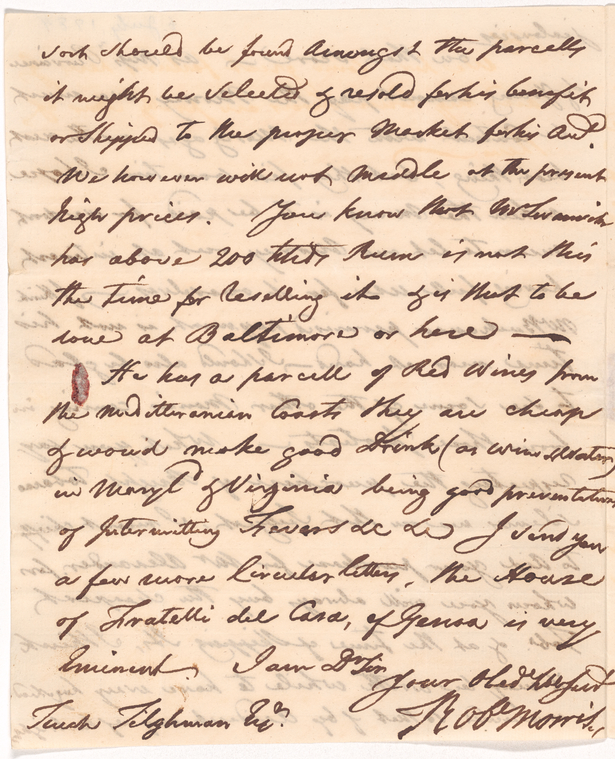 sort should be found amongst the parcells
it might be selected & resold for his benefit
or Shipped to the proper Market for his acc.t
We however will not meddle at the present
high prices. You know that Mr Swanwick
has above 200 Hhds Rum is not this
the time for reselling it & is that to be
done at Baltimore or here —
He has a parcell of Red Wines from
the Mediterranian Coasts they are cheap
& would make good Drink (as wine & Water)
in Maryl.d & Virginia being good preventitives
of Intermitting Fevers &c &c I send you
a few more Circular letters, the House
of Fratelli del Casa, of Genoa is very
Eminent. I am Dr Sir
Your Obed.t hble Serv.t
Rob.t Morris
Tench Tilghman Esq.r